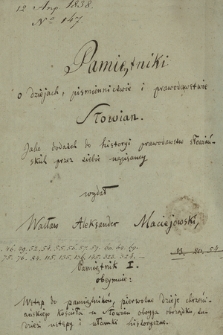 12 Aug 1838.
No 147
Pamiętniki
o dziejach, piśmiennictwie i prawodawstwie
Słowian.
Jako dodatek do historyi prawodawstw słowiań-
skich przez siebie napisanej
wydał
Wacław Aleksander Maciejowski,
Pamiętnik I.
obejmuie:
Wstęp do pamiętników, pierwotne dzieje chrześci-
jańskiego kościoła u Słowian obojga obrządku,